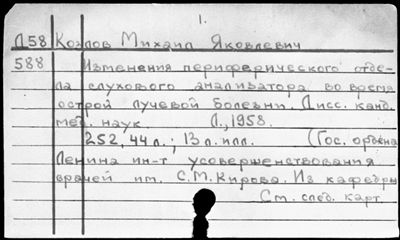 1.
Д58 Козлов Михаил Яковлевич
588 Изменения периферического отде-
ла слухового анализатора во время
острой лучевой болезни. Дисс. канд.
мед. наук Л., 1958.
252, 44 л.; 13 л. илл. (Гос. ордена
Ленина ин-т усовершенствования
врачей им. С.М. Кирова. Из кафедры
См. след. карт.